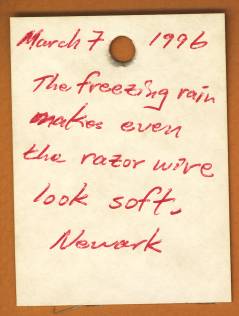 March 7 1996
The freezing rain
makes even
the razor wire
look soft.
Newark